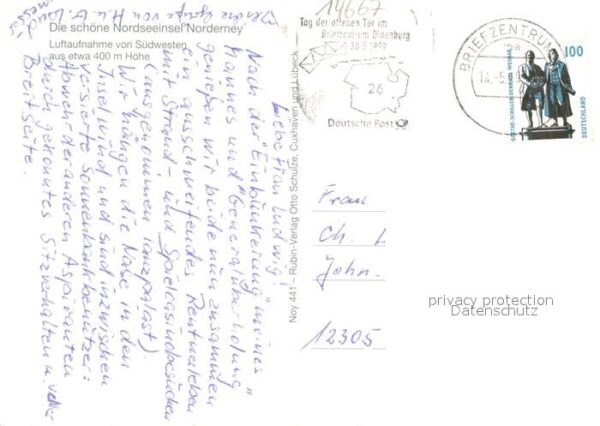 Die schöne Nordseeinsel Norderney
Luftaufnahme von Südwesten
aus etwa 400 m Höhe
Noy 441 - Rubin-Verlag Otto Schulze, Cuxhaven und Lübeck
14667
Tag der offenen Tür im
Briefzentrum Oldenburg
30.5.1999
26
Deutsche Post
BRIEFZENTRUM
14.-5
100
GOETHE-SCHILLER-DENKMAL WEIMAR
DEUTSCHLAND
Liebe Frau Ludwig!
Nach der "Einbunkerung" meines
Mannes und "Generalüberholung"
genießen wir beide nun zusammen
ein ausschweifendes Rentnerleben
mit Strand- und Spielcasinobesuchen
(ausgenommen Tanzpalast)
Wir hängen die Nase in den
Inselwind und sind inzwischen
versierte Sonnenbankbenutzer:
Abwehr der anderen Aspiranten
durch gekonntes Sitzverhalten u. voller
Breitseite.
Grüße von H. u.
Frau
Ch. L
John.
12305
privacy protection
Datenschutz